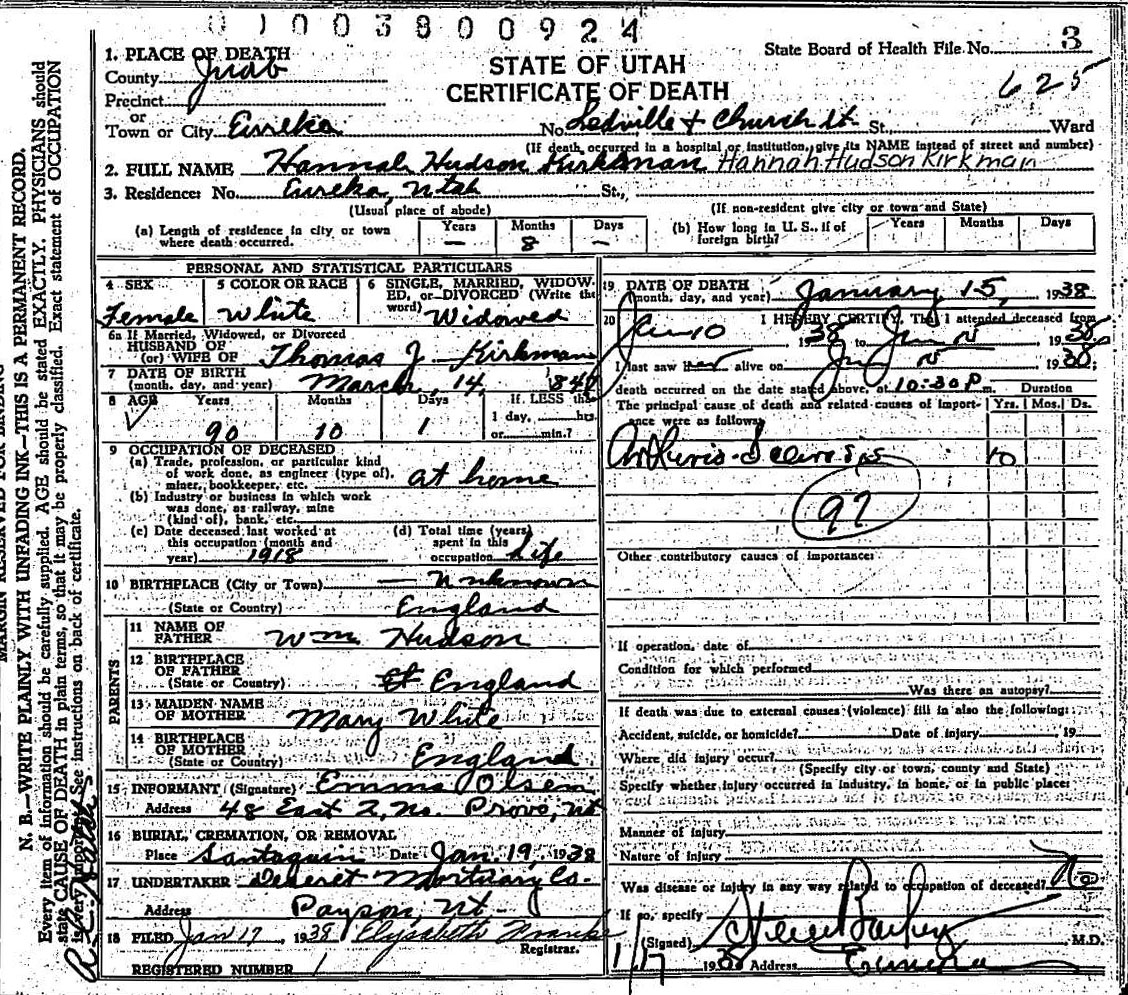 0 1 0 0 3 8 0 0 9 2 4
State Board of Health File No. 3
625
STATE OF UTAH
CERTIFICATE OF DEATH
1. PLACE OF DEATH
County Juab
Precinct
or
Town or City Eureka No. Ledville + Church st. St., Ward
(If death occurred in a hospital or institution, give its NAME instead of street and number)
2. FULL NAME Hannah Hudson Kirkman Hannah Hudson Kirkman
3. Residence: No. Eureka, Utah St.,
(Usual place of abode) (If non-resident give city or town and State)
(a) Length of residence in city or town where death occurred. Years — Months 8 Days —
(b) How long in U. S., if of foreign birth? Years Months Days
PERSONAL AND STATISTICAL PARTICULARS
4 SEX Female
5 COLOR OR RACE White
6 SINGLE, MARRIED, WIDOWED, or DIVORCED (Write the word) Widowed
6a If Married, Widowed, or Divorced
HUSBAND OF
(or) WIFE OF Thomas J. Kirkman
7 DATE OF BIRTH
(month, day, and year) March, 14, 184
8 AGE Years 90 Months 10 Days 1 If LESS than 1 day, hrs. or min.?
9 OCCUPATION OF DECEASED
(a) Trade, profession, or particular kind of work done, as engineer (type of), miner, bookkeeper, etc. at home
(b) Industry or business in which work was done, as railway, mine (kind of), bank, etc.
(c) Date deceased last worked at this occupation (month and year) 1918
(d) Total time (years) spent in this occupation Life
10 BIRTHPLACE (City or Town) — Unknown
(State or Country) England
PARENTS
11 NAME OF FATHER Wm Hudson
12 BIRTHPLACE OF FATHER
(State or Country) England
13 MAIDEN NAME OF MOTHER Mary White
14 BIRTHPLACE OF MOTHER
(State or Country) England
15 INFORMANT (Signature) Emma Olsen
Address 48 East 2, No. Provo, Ut
16 BURIAL, CREMATION, OR REMOVAL
Place Santaquin Date Jan. 19, 1938
17 UNDERTAKER Deseret Mortuary Co.
Address Payson, Ut.
18 FILED Jan 17, 1938 Elysabeth Franke
Registrar.
REGISTERED NUMBER 1
19 DATE OF DEATH
(month, day, and year) January 15, 1938
20 I HEREBY CERTIFY, That I attended deceased from
Jan 10 1938 to Jan 15 1938
I last saw her alive on Jan 15 1938;
death occurred on the date stated above, at 10:30 P m. Duration
The principal cause of death and related causes of importance were as follows: Yrs. Mos. Ds.
10
97
Other contributory causes of importance:
If operation, date of
Condition for which performed
Was there an autopsy?
If death was due to external causes (violence) fill in also the following:
Accident, suicide, or homicide? Date of injury , 19
Where did injury occur?
(Specify city or town, county and State)
Specify whether injury occurred in industry, in home, or in public place:
Manner of injury
Nature of injury
Was disease or injury in any way related to occupation of deceased? No
If so, specify
(Signed) Steele Bailey M.D.
1/17 1938 Address Eureka
MARGIN RESERVED FOR BINDING
N. B.—WRITE PLAINLY WITH UNFADING INK—THIS IS A PERMANENT RECORD.
Every item of information should be carefully supplied. AGE should be stated EXACTLY. PHYSICIANS should
state CAUSE OF DEATH in plain terms, so that it may be properly classified. Exact statement of OCCUPATION
is very important. See instructions on back of certificate.